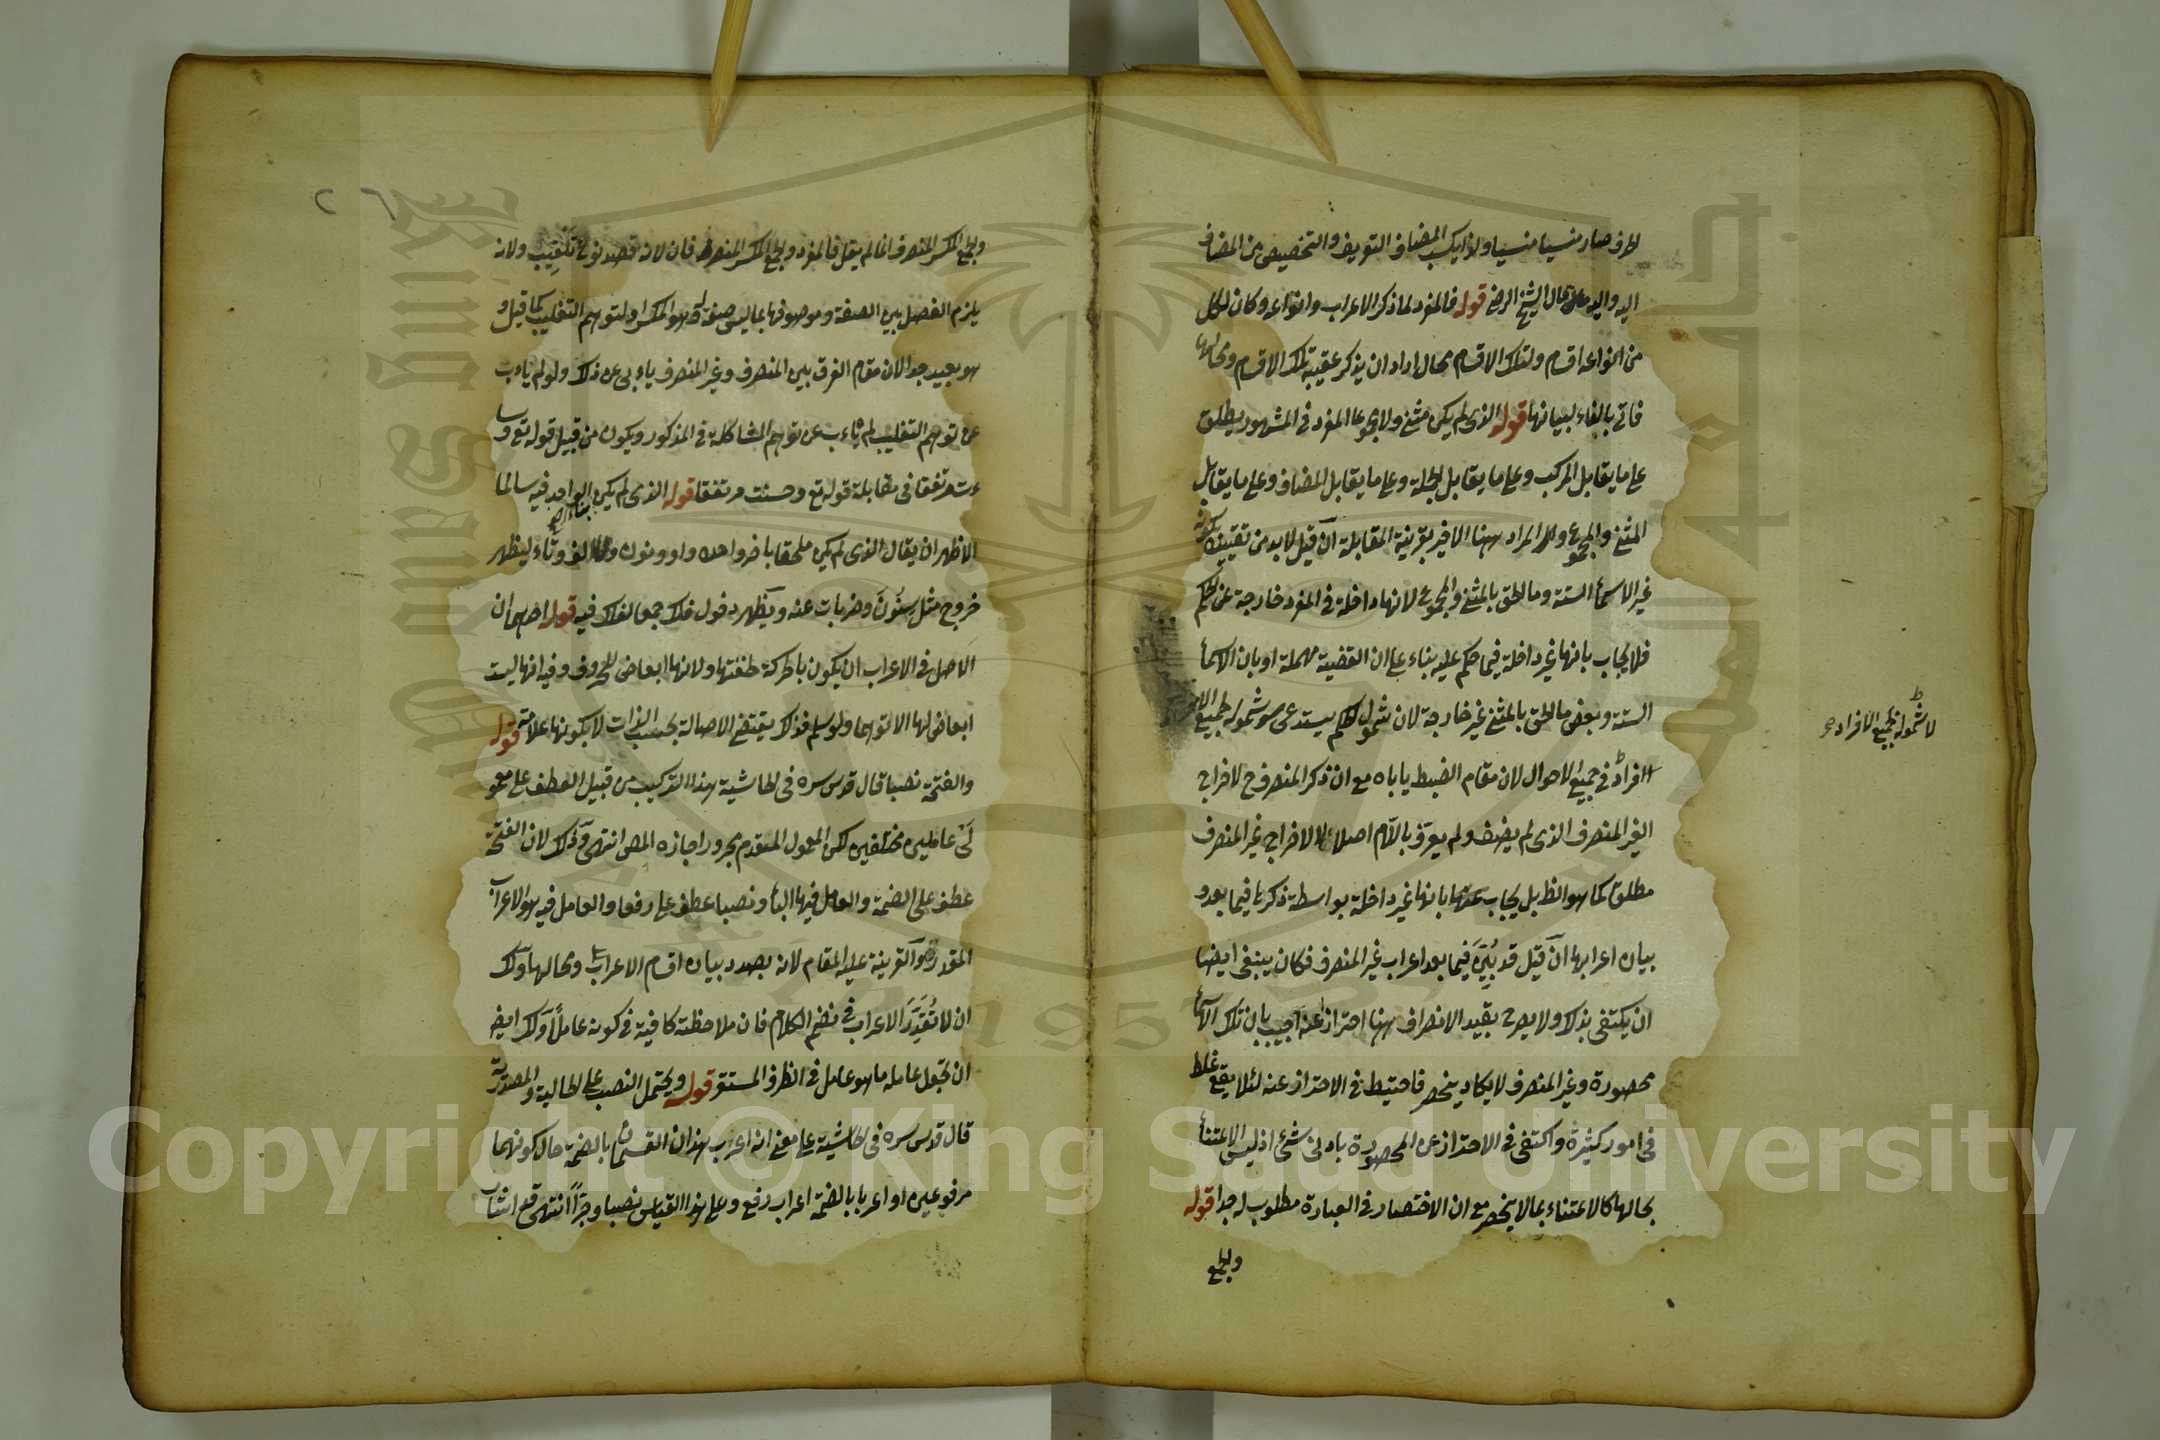 الحرف صار منسيا منسيا ولذا يكسب المضاف التعريف والتخصيص من المضاف
اليه واليه مال الشيخ الرضي قوله فالمفرد لما ذكر الاعراب وانواعه وكان لكل
من انواعه اقسام ولتلك الاقسام محال اراد ان يذكر عقيبه تلك الاقسام ومحالها
فاتى بالفاء لبيانها قوله الذي لم يكن مثنى ولا مجموعا المفرد في المشهور يطلق
على ما يقابل المركب وعلى ما يقابل الجملة وعلى ما يقابل المضاف وعلى ما يقابل
المثنى والمجموع والمراد ههنا الاخير بقرينة المقابلة ان قيل لابد من تقييده بكونه
غير الاسماء الستة وما الحق بالمثنى والمجموع لانها داخلة في المفرد خارجة عن الحكم
فلا يجاب بانها غير داخلة فيما حكم عليه بناء على ان القضية مهملة او بان الاسماء
الستة وبعض ما الحق بالمثنى غير خارجة لان شمول الحكم يستدعي شموله لجميع
الافراد في جميع الاحوال لان مقام الضبط ياباه مع ان ذكر المنصرف ح لاخراج
الغير المنصرف الذي لم يضف ولم يعرف باللام اصلا لا لاخراج غير المنصرف
مطلقا كما هو الظ بل يجاب عنها بانها غير داخلة بواسطة ذكرها فيما بعد و
بيان اعرابها ان قيل قد بين فيما بعد اعراب غير المنصرف فكان ينبغي ايضا
ان يكتفى بذلك ولا يصرح بقيد الانصراف ههنا احترازا عنه اجيب بان تلك الاسماء
محصورة وغير المنصرف لا يكاد ينحصر فاحتيط في الاحتراز عنه لئلا يقع غلط
في امور كثيرة واكتفى في الاحتراز عن المحصورة بادنى شئ اذ ليس الاعتناء
بحالها كالاعتناء بما لا ينحصر مع ان الاختصار في العبارة مطلوب له جدا قوله
والجمع
لا شموله لجميع الافراد
والجمع المكسر المنصرف انما لم يقل فالمفرد والجمع المكسر المنصرفان لانه قصد نوع تغليب ولانه
يلزم الفصل بين الصفة وموصوفها بما ليس صفة له وهو المكسر او لتوهم التغليب كما قيل و
هو بعيد جدا لان مقام الفرق بين المنصرف وغير المنصرف يابى عن ذلك ولو لم ياب
عن توهم التغليب لم ياب عن توهم المشاكلة في المذكور ويكون من قبيل قوله تع وسا
ءت مرتفقا في مقابلة قوله تع وحسنت مرتفقا قوله الذي لم يكن بناء الواحد فيه سالما
الاظهر ان يقال الذي لم يكن ملحقا باخر واحده واو ونون ولا الف وتاء ليظهر
خروج مثل سنون وضربات عنه ويظهر دخول فلك جمعا لفلك فيه قوله احدهما ان
الاصل في الاعراب ان يكون بالحركة لخفتها ولانها ابعاض للحروف وفيه انها ليست
ابعاض لها الا توهما ولو سلم فذلك يقتضي الاصالة بحسب الذات لا بكونها علامة قوله
والفتحة نصبا قال قدس سره في الحاشية هذا التركيب من قبيل العطف على معمو
لي عاملين مختلفين لكن المعمول المتقدم مجرور اجازه المص انتهى وذلك لان الفتحة
عطف على الضمة والعامل فيها الباء ونصبا عطف على رفعا والعامل فيه هو الاعراب
المقدر والقرينة عليه المقام لانه بصدد بيان اقسام الاعراب ومحالها ولك
ان لا تقدر الاعراب في نظم الكلام فان ملاحظته كافية في كونه عاملا ولك ايضا
ان تجعل عامله ما هو عامل في الظرف المستقر قوله ويحتمل النصب على الحالية والمصدرية
قال قدس سره في الحاشية على معنى انه اعرب هذان القسمان بالضمة حال كونهما
مرفوعين او اعربا بالضمة اعراب رفع وعلى هذا القياس نصبا وجرا انتهى